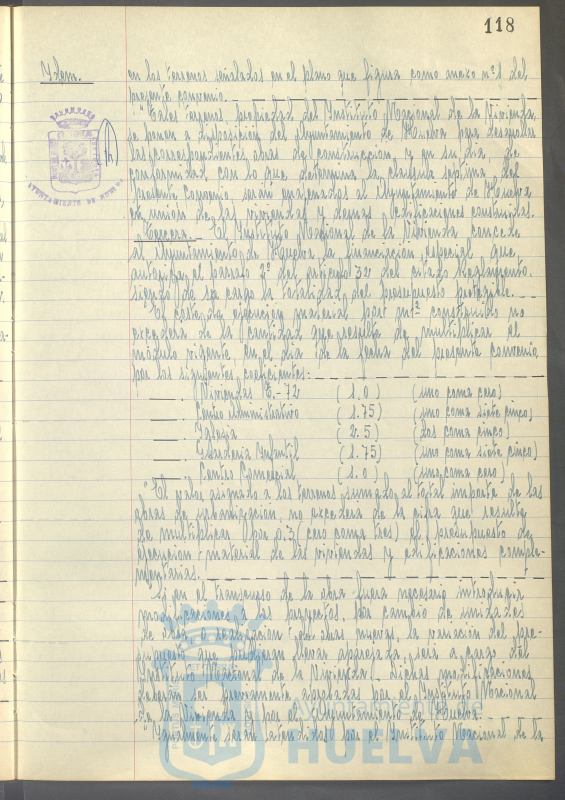 118
Idem.
en los terrenos señalados en el plano que figura como anexo nº 1 del
presente convenio.
"Tales terrenos, propiedad del Instituto Nacional de la Vivienda,
se ponen a disposición del Ayuntamiento de Huelva para desarrollar
las correspondientes obras de construcción y en su dia, de
conformidad con lo que determina la clausula septima del
presente Convenio seran enajenados al Ayuntamiento de Huelva
en union de las viviendas y demas edificaciones construidas.
Tercera.- El Instituto Nacional de la Vivienda concede
al Ayuntamiento de Huelva, la financiacion especial que
autoriza el parrafo 2º del articulo 32 del citado Reglamento,
siendo de su cargo la totalidad del presupuesto protegible.
"El coste de ejecución material por m² construido no
excedera de la cantidad que resulte de multiplicar el
módulo vigente, en el dia de la fecha del presente convenio,
por los siguientes coeficientes:
Viviendas T.-72 (1.0) (uno coma cero)
Centro Administrativo (1.75) (uno coma siete cinco)
Iglesia (2.5) (dos coma cinco)
Guarderia Infantil (1.75) (uno coma siete cinco)
Centro Comercial (1.0) (uno coma cero)
"El valor asignado a los terrenos, sumado al total importe de las
obras de urbanizacion, no excedera de la cifra que resulte
de multiplicar por 0.3 (cero coma tres) el presupuesto de
ejecucion material de las viviendas y edificaciones comple-
mentarias.
Si en el transcurso de la obra fuera necesario introducir
modificaciones a los proyectos, por cambio de unidades
de obra o realizacion con otras nuevas, la variacion del pre-
supuesto que pudieran llevar aparejada, será a cargo del
Instituto Nacional de la Vivienda. Dichas modificaciones
deberan ser previamente aprobadas por el Instituto Nacional
de la Vivienda y por el Ayuntamiento de Huelva.
"Igualmente seran atendidos por el Instituto Nacional de la
AYUNTAMIENTO DE HUELVA
Ayuntamiento de
HUELVA